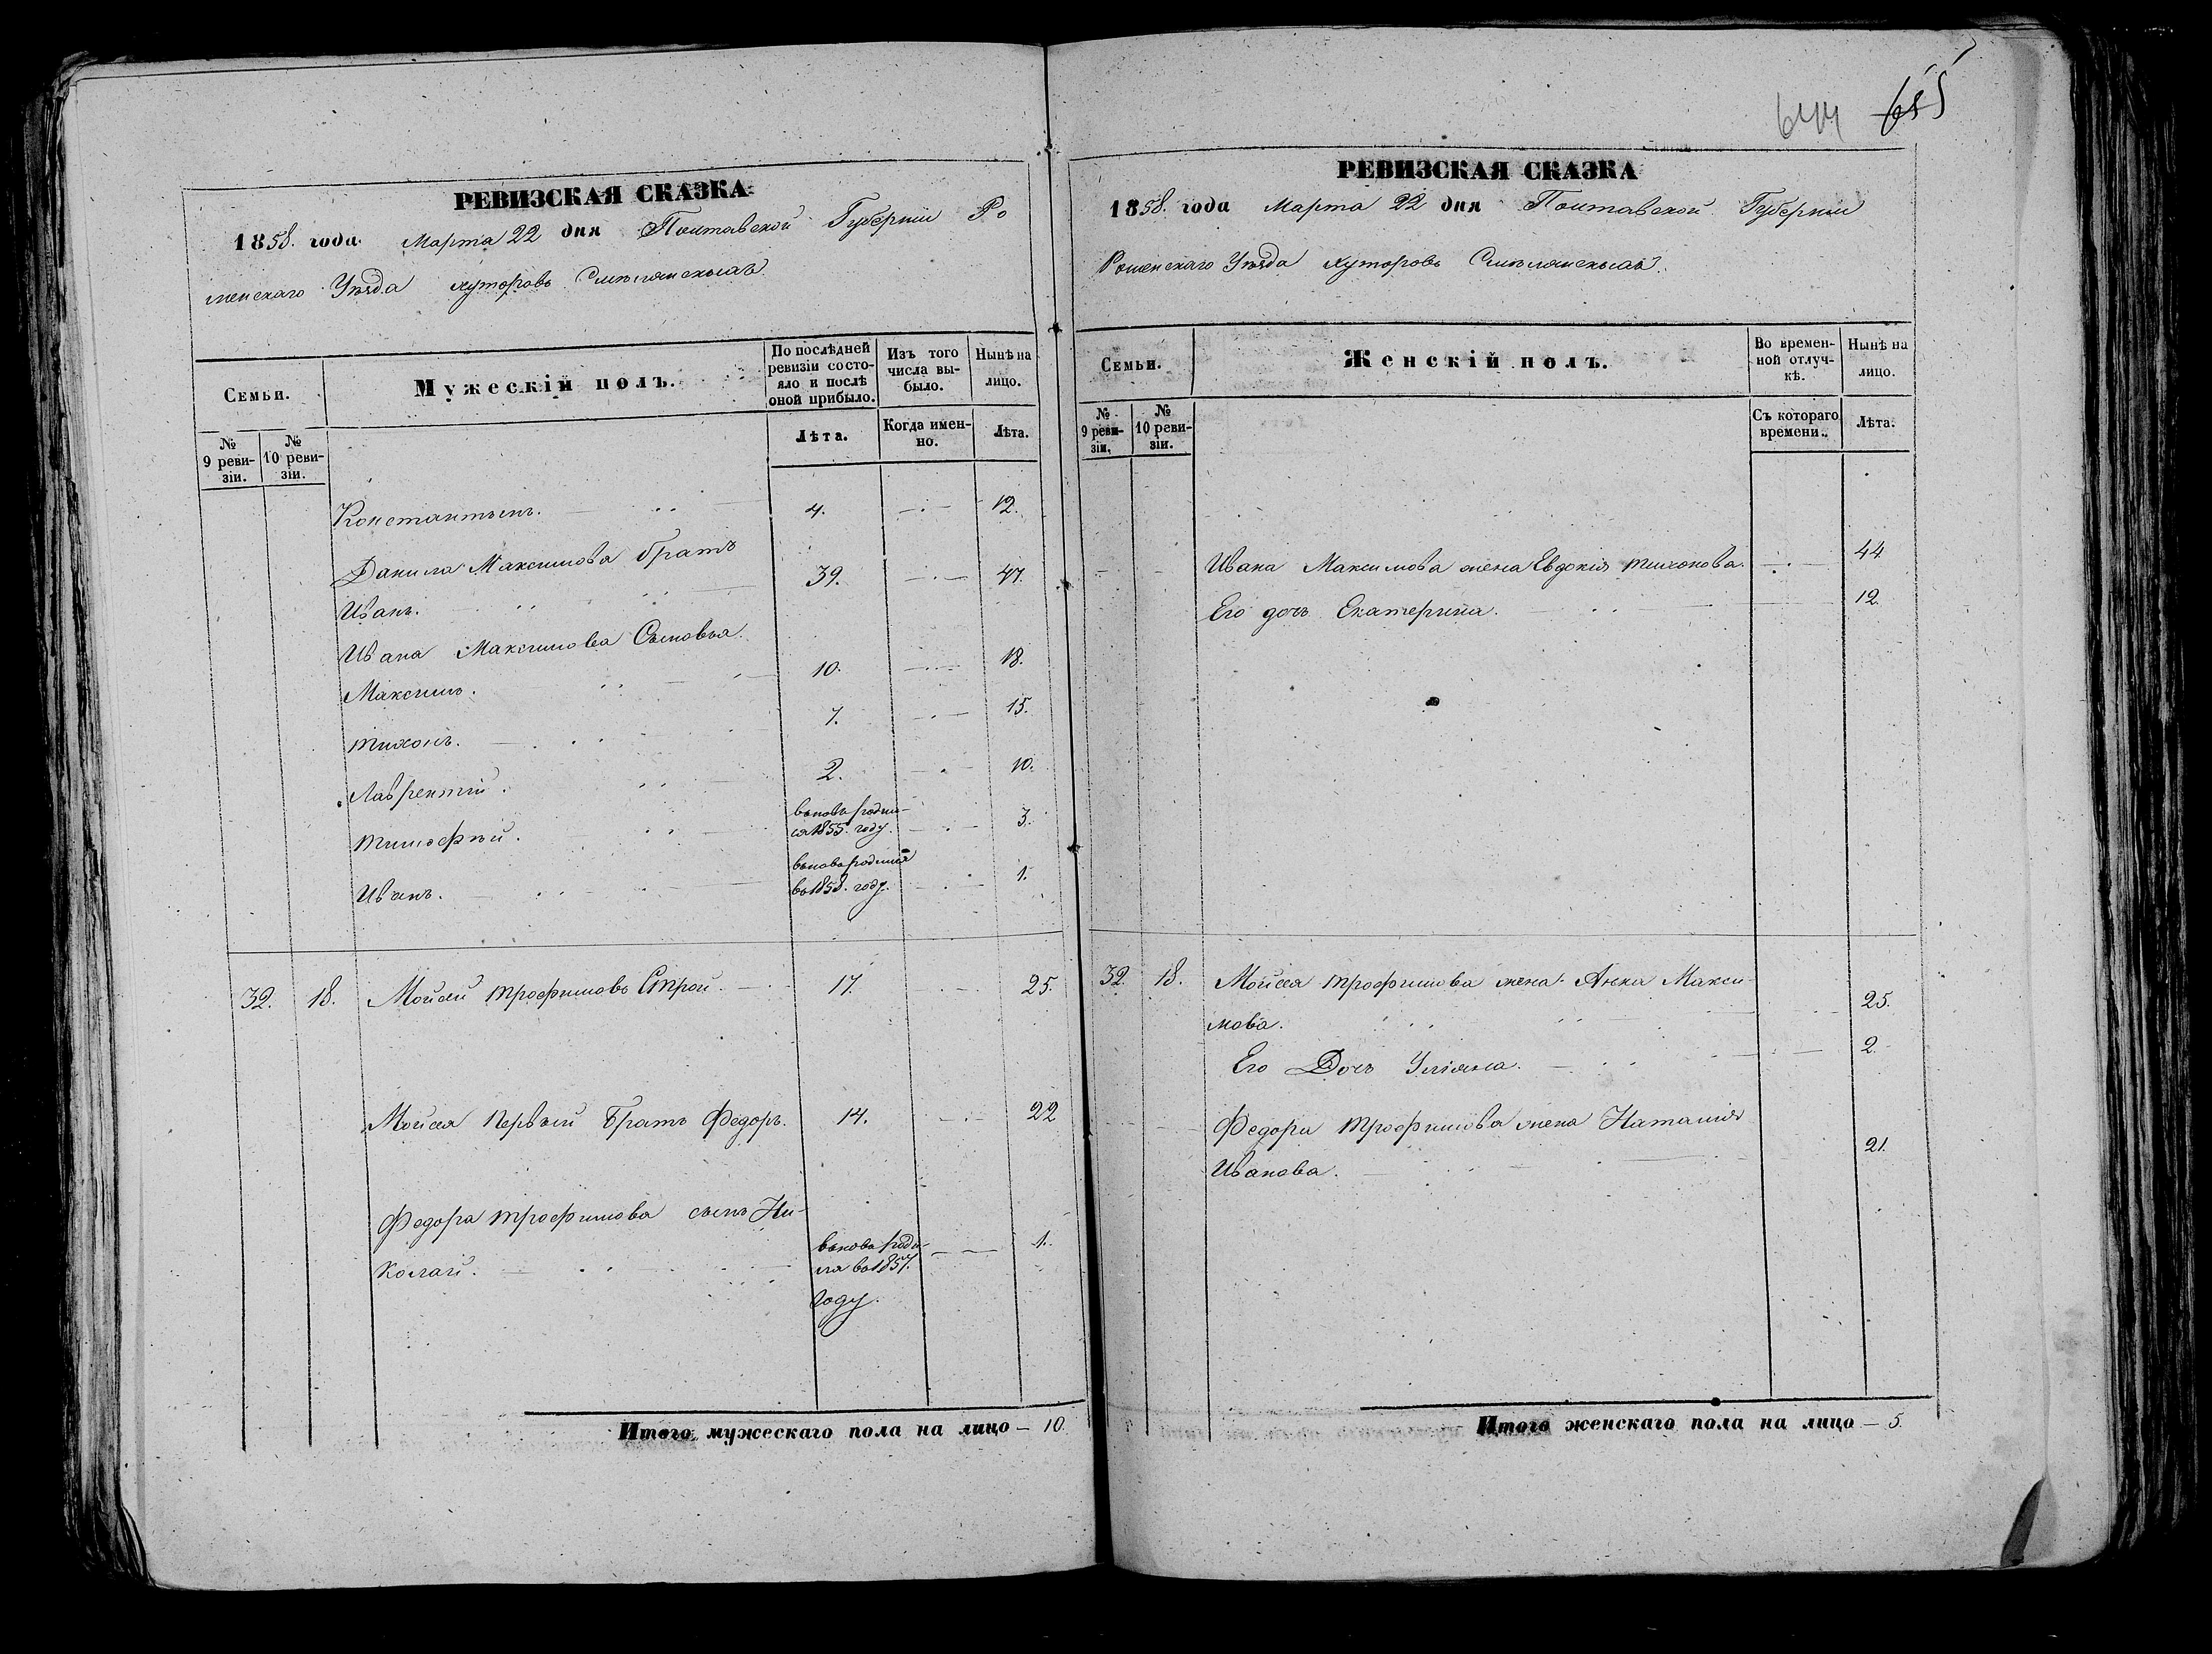 644 655
РЕВИЗСКАЯ СКАЗКА
1858. года Марта 22 дня Полтавской Губерніи Ро
менскаго Уѣзда хуторовъ Смѣлянскыхъ
Семьи.
Мужескій полъ.
По послѣдней ревизіи состо-
яло и послѣ оной прибыло.
Изъ того числа вы-
было.
Нынѣ на лицо.
№ 9 реви-
зіи.
№ 10 реви-
зіи.
Лѣта.
Когда имен-
но.
Лѣта.
Константынъ. 4. 12.
Данила Максимова братъ
Иванъ. 39. 47.
Ивана Максимова Сыновья.
Максимъ. 10. 18.
Тихонъ. 7. 15.
Лаврентій. 2. 10.
Тимофѣй. вновь родил-
ся 1855. году. 3.
Иванъ.
во 1858. году. 1.
32. 18. Мойсей Трофимовъ Строй. 17. 25.
Мойсея Первый Братъ Федоръ. 14. 22
Федора Трофимова сынъ Ни-
колай. 1.
во 1857.
году.
Итого мужескаго пола на лицо — 10.
РЕВИЗСКАЯ СКАЗКА
1858. года Марта 22 дня Полтавской Губерніи
Роменскаго Уѣзда хуторовъ Смѣлянскыхъ.
Семьи.
Женскій полъ.
Во времен-
ной отлуч-
кѣ.
Нынѣ на лицо.
№ 9 реви-
зіи.
№ 10 реви-
зіи.
Съ котораго времени.
Лѣта.
Ивана Максимова жена Евдокія Тихонова. 44
Его дочь Екатерина. 12.
32. 18. Мойсея Трофимова жена Анна Макси-
мова. 25.
Его Дочь Уліяна. 2.
Федора Трофимова жена Наталія
Иванова. 21.
Итого женскаго пола на лицо — 5.